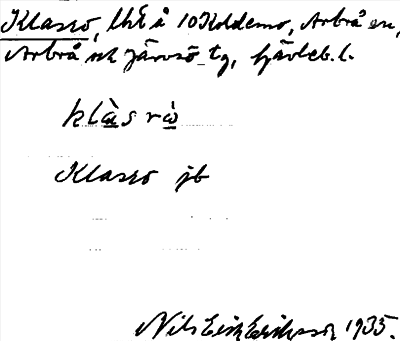 Klasro, lht å 10 Koldemo, Arbrå sn,
Arbrå och Järvsö tg, Gävleb. l.
klàsrò
Klasro jb
Nils Erik Eriksson 1935.